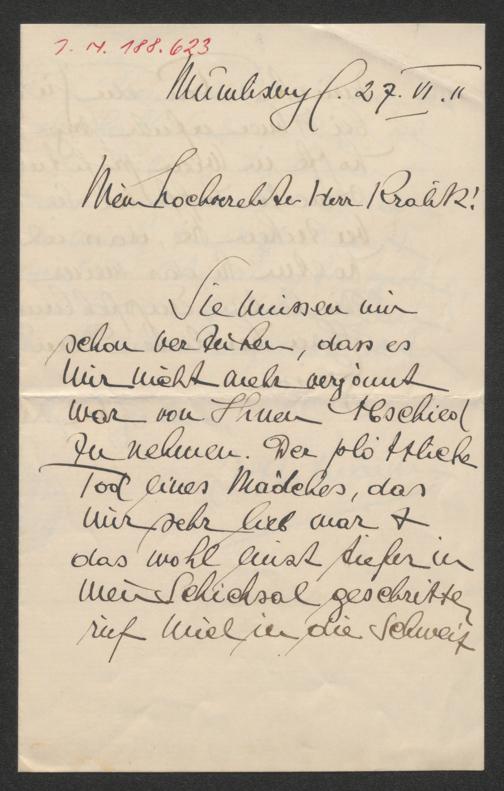 J. N. 188.623
27. VI. 11
Mein hochverehrter Herr Kralik!
Sie müssen mir
schon verzeihen, dass es
mir nicht mehr vergönnt
war von Ihnen Abschied
zu nehmen. Der plötzliche
Tod eines Mädches, das
mir sehr lieb war +
das wohl einst tiefer in
mein Schicksal geschritten,
rief mich in die Schweiz